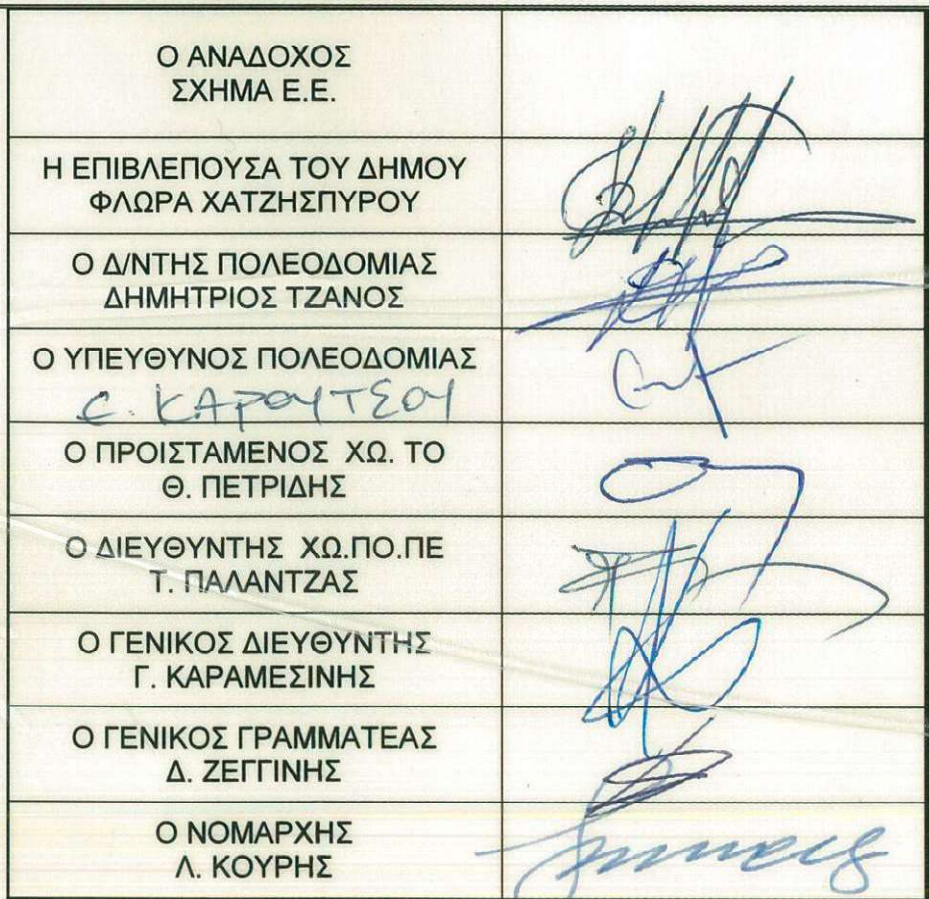 Ο ΑΝΑΔΟΧΟΣ
ΣΧΗΜΑ Ε.Ε.
Η ΕΠΙΒΛΕΠΟΥΣΑ ΤΟΥ ΔΗΜΟΥ
ΦΛΩΡΑ ΧΑΤΖΗΣΠΥΡΟΥ
Ο Δ/ΝΤΗΣ ΠΟΛΕΟΔΟΜΙΑΣ
ΔΗΜΗΤΡΙΟΣ ΤΖΑΝΟΣ
Ο ΥΠΕΥΘΥΝΟΣ ΠΟΛΕΟΔΟΜΙΑΣ
Σ. ΚΑΡΟΥΤΣΟΥ
Ο ΠΡΟΙΣΤΑΜΕΝΟΣ ΧΩ. ΤΟ
Θ. ΠΕΤΡΙΔΗΣ
Ο ΔΙΕΥΘΥΝΤΗΣ ΧΩ.ΠΟ.ΠΕ
Τ. ΠΑΛΑΝΤΖΑΣ
Ο ΓΕΝΙΚΟΣ ΔΙΕΥΘΥΝΤΗΣ
Γ. ΚΑΡΑΜΕΣΙΝΗΣ
Ο ΓΕΝΙΚΟΣ ΓΡΑΜΜΑΤΕΑΣ
Δ. ΖΕΓΓΙΝΗΣ
Ο ΝΟΜΑΡΧΗΣ
Λ. ΚΟΥΡΗΣ